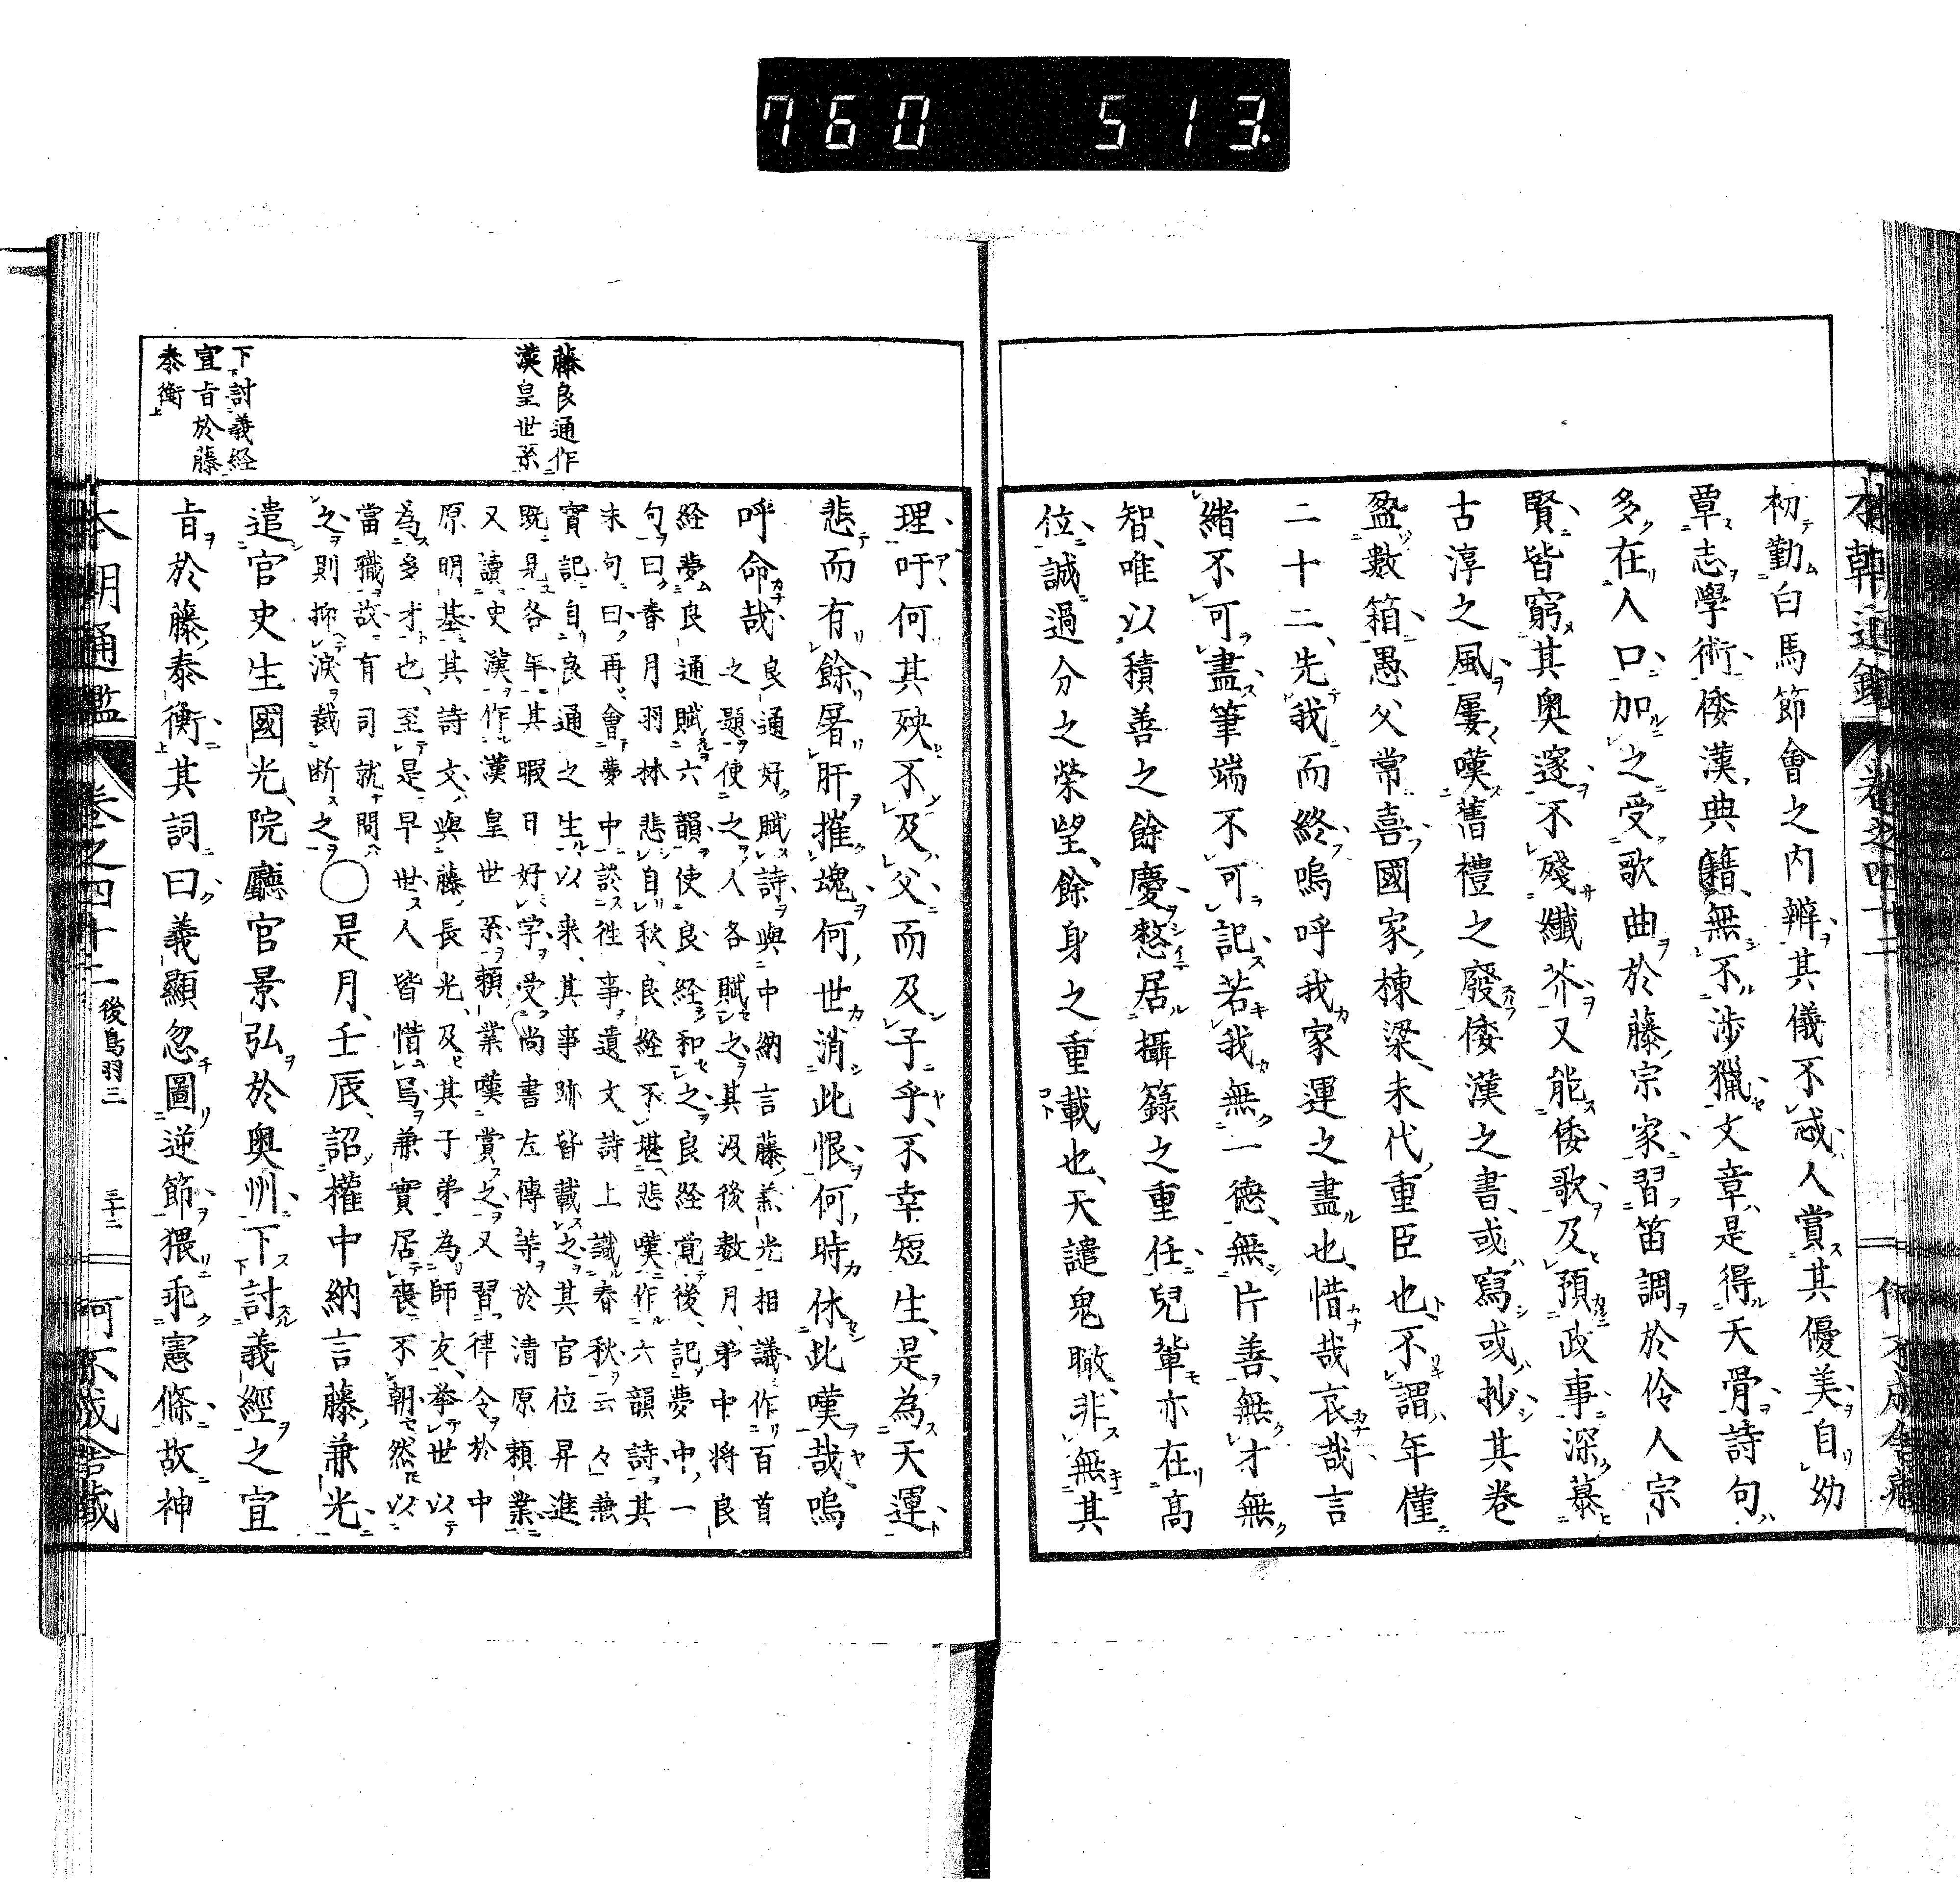 760 513.
本朝通鑑 卷之四十二
初勤白馬節會之内辨其儀不忒人賞其優美自幼
覃志學術倭漢典籍無不涉獵文章是得天骨詩句
多在人口加之受歌曲於藤宗家習笛調於伶人宗
賢皆窮其奥邃不殘纖芥又能倭歌及預政事深慕
古淳之風屢嘆舊禮之廢倭漢之書或寫或抄其卷
盈數箱愚父常喜國家棟梁末代重臣也不謂年僅
二十二先我而終嗚呼我家運之盡也惜哉哀哉言
緒不可盡筆端不可記若我無一德無片善無才無
智唯以積善之餘慶憖居攝籙之重任兒輩亦在高
位誠過分之榮望餘身之重載也天譴鬼瞰非無其
理吁何其殃不及父而及子乎不幸短生是為天運
悲而有餘屠肝摧魂何世消此恨何時休此嘆哉嗚
呼命哉
良通好賦詩與中納言藤兼光相議作百首
之題使之人各賦之其沒後數月弟中將良
経夢良通賦六韻使良経和之良経覚後記夢中一
句曰春月羽林悲自秋良経不堪悲嘆作六韻詩其
末句曰再會夢中談往事遺文詩上識春秋云々兼
實記自良通之生以来其事跡皆載之其官位昇進
既見各年其暇日好学受尚書左傳等於清原頼業
又讀史漢作漢皇世系頼業嘆賞之又習律令於中
原明基其詩文與藤長光及其子弟為師友挙世以
為多才也至是早世人皆惜焉兼實居喪不朝然以
當職故有司就問
之則抑淚裁断之○是月壬辰詔權中納言藤兼光
遣官史生國光院廳官景弘於奥州下討義經之宣
旨於藤泰衡其詞曰義顯忽圖逆節猥乖憲條故神
藤良通作
漢皇世系
下討義経
宣旨於藤
泰衡
本朝通鑑 卷之四十二 後鳥羽三 三十二